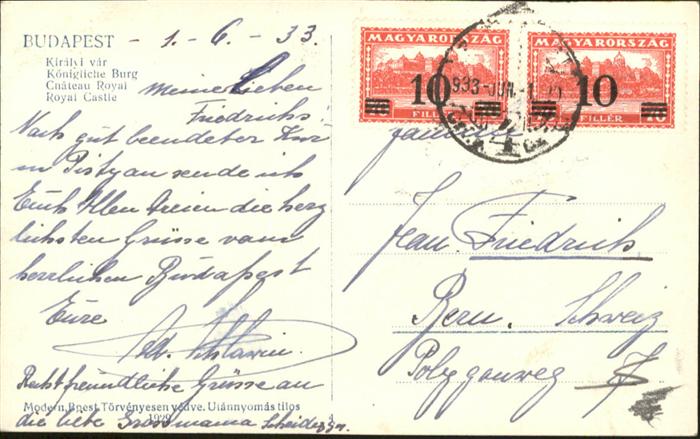 BUDAPEST - 1. - 6. - 33.
Királyi vár
Königliche Burg
Château Royal
Royal Castle
Meine lieben
Friedrichs!
Nach gut beendeter Kur
in Pistyan sende ich
Euch Allen dreien die herz
lichsten Grüsse vom
herrlichen Budapest
Eure
Recht freundliche Grüsse an
Modern, Bpest. Törvényesen védve. Utánnyomás tilos
1929
die liebe Grossmama Scheidegger.
MAGYARORSZÁG
10
FILLÉR
MAGYARORSZÁG
10
FILLÉR
933 JUN.
4
Familie
Jean Friedrich
Bern. Schweiz
Polygonweg 7